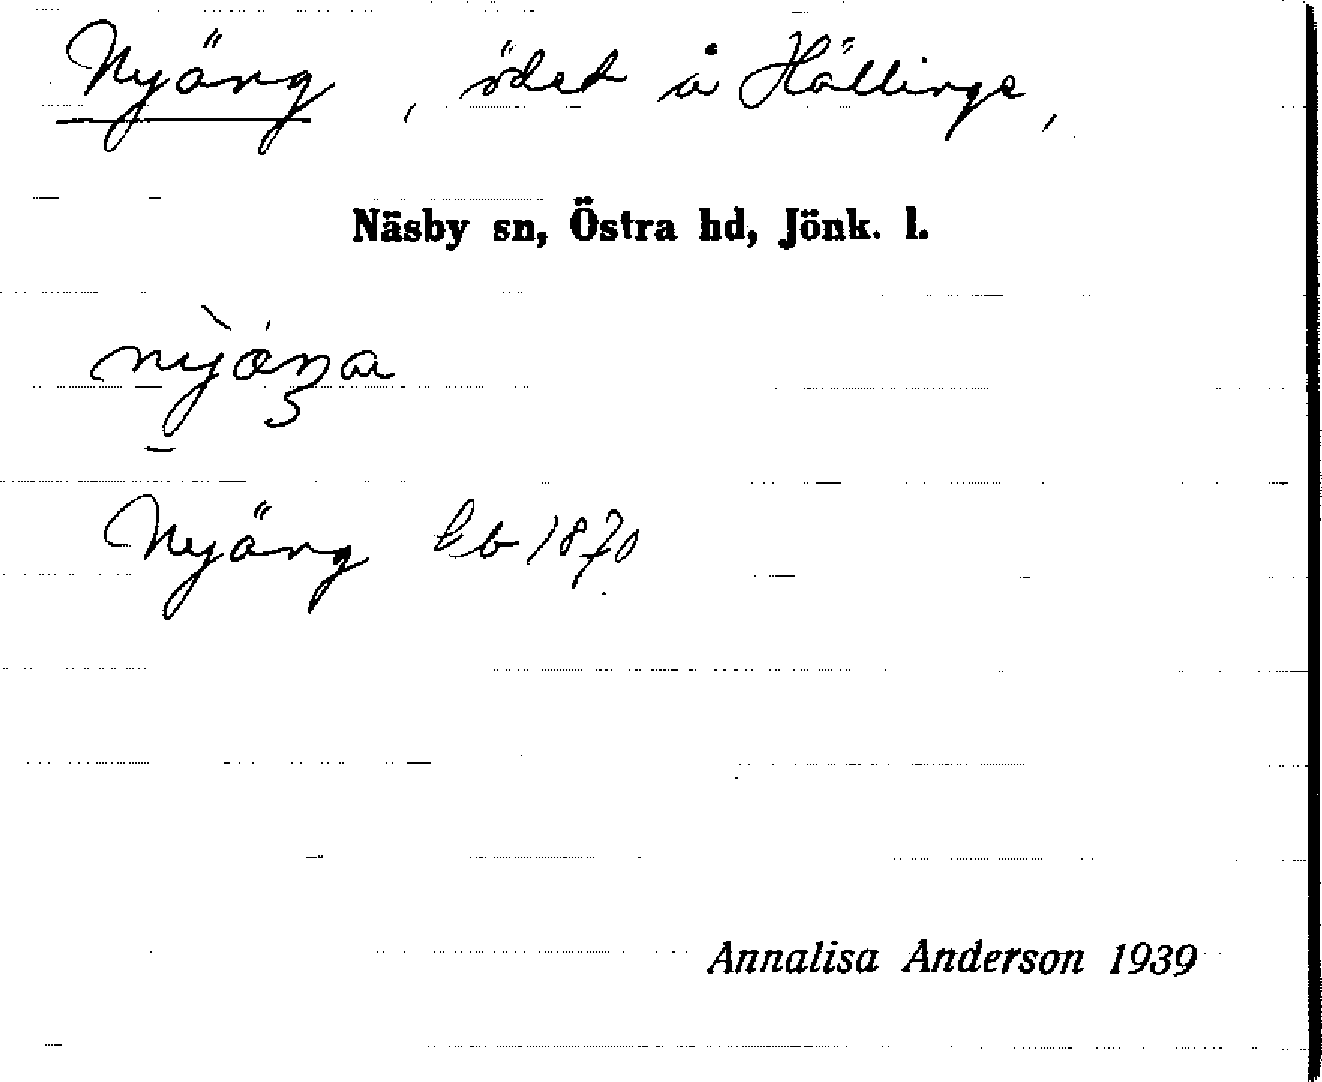 Nyäng, ödet å Hällinge,
Näsby sn, Östra hd, Jönk. l.
Nyäng lb 1870
Annalisa Anderson 1939